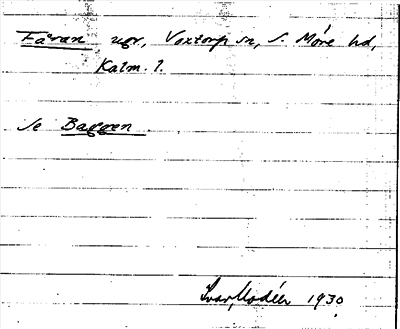 Fåran, ugr., Voxtorp sn, S. Möre hd,
Kalm. l.
Se Baggen.
Ivar Modéer 1930